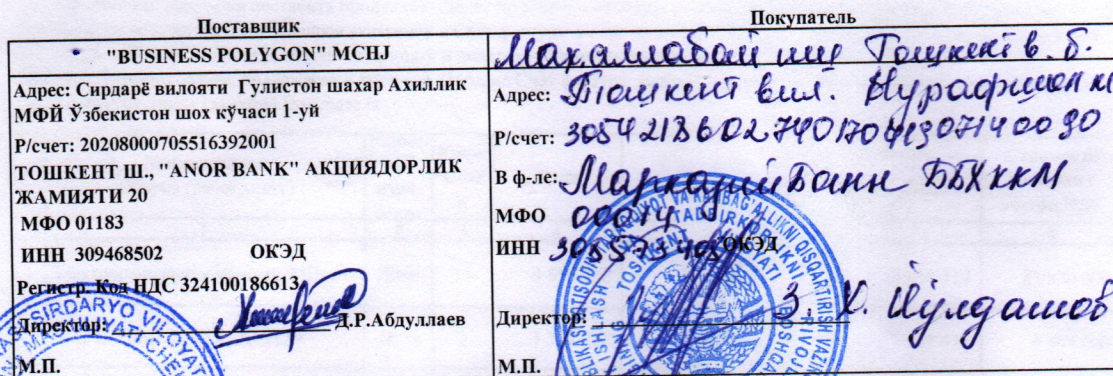 Поставщик
Покупатель
"BUSINESS POLYGON" MCHJ
Адрес: Сирдарё вилояти Гулистон шахар Ахиллик
МФЙ Ўзбекистон шох кўчаси 1-уй
Р/счет: 20208000705516392001
ТОШКЕНТ Ш., "ANOR BANK" АКЦИЯДОРЛИК
ЖАМИЯТИ 20
МФО 01183
ИНН 309468502 ОКЭД
Регистр. Код НДС 324100186613
Директор: Д.Р.Абдуллаев
М.П.
Махаллабай иш Тошкент в. б.
Адрес: Тошкент вил. Нурафшон
Р/счет:
В ф-ле: Марказий Банк ББХККМ
МФО 00014
ИНН ОКЭД
Директор: З. Х. Йўлдашов
М.П.
SIRDARYO VILOYAT